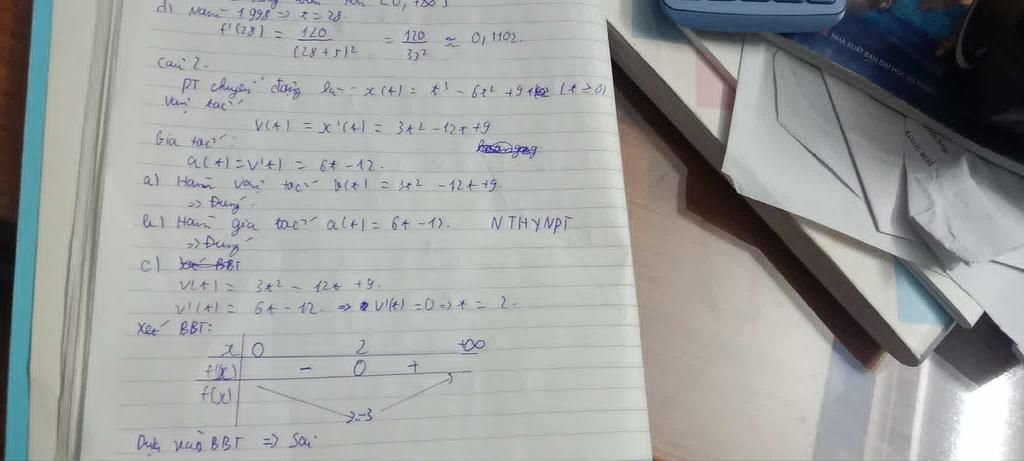 d) Năm 1998 => t = 28.
f'(28) = 120/(28+5)² = 120/33² ≈ 0,1102.
Câu 2.
PT chuyển động là: x(t) = t³ - 6t² + 9t (t ≥ 0)
Vận tốc
v(t) = x'(t) = 3t² - 12t + 9
Gia tốc:
a(t) = v'(t) = 6t - 12.
a) Hàm vận tốc v(t) = 3t² - 12t + 9.
=> Đúng.
b) Hàm gia tốc a(t) = 6t - 12. NTHYNPT
=> Đúng
c) Xét BBT
v(t) = 3t² - 12t + 9.
v'(t) = 6t - 12 => v'(t) = 0 => t = 2.
Xét BBT:
x 0 2 +∞
f'(x) - 0 +
f(x)
-3
Dựa vào BBT => Sai
NHÀ XUẤT BẢN ĐẠI HỌC
acid